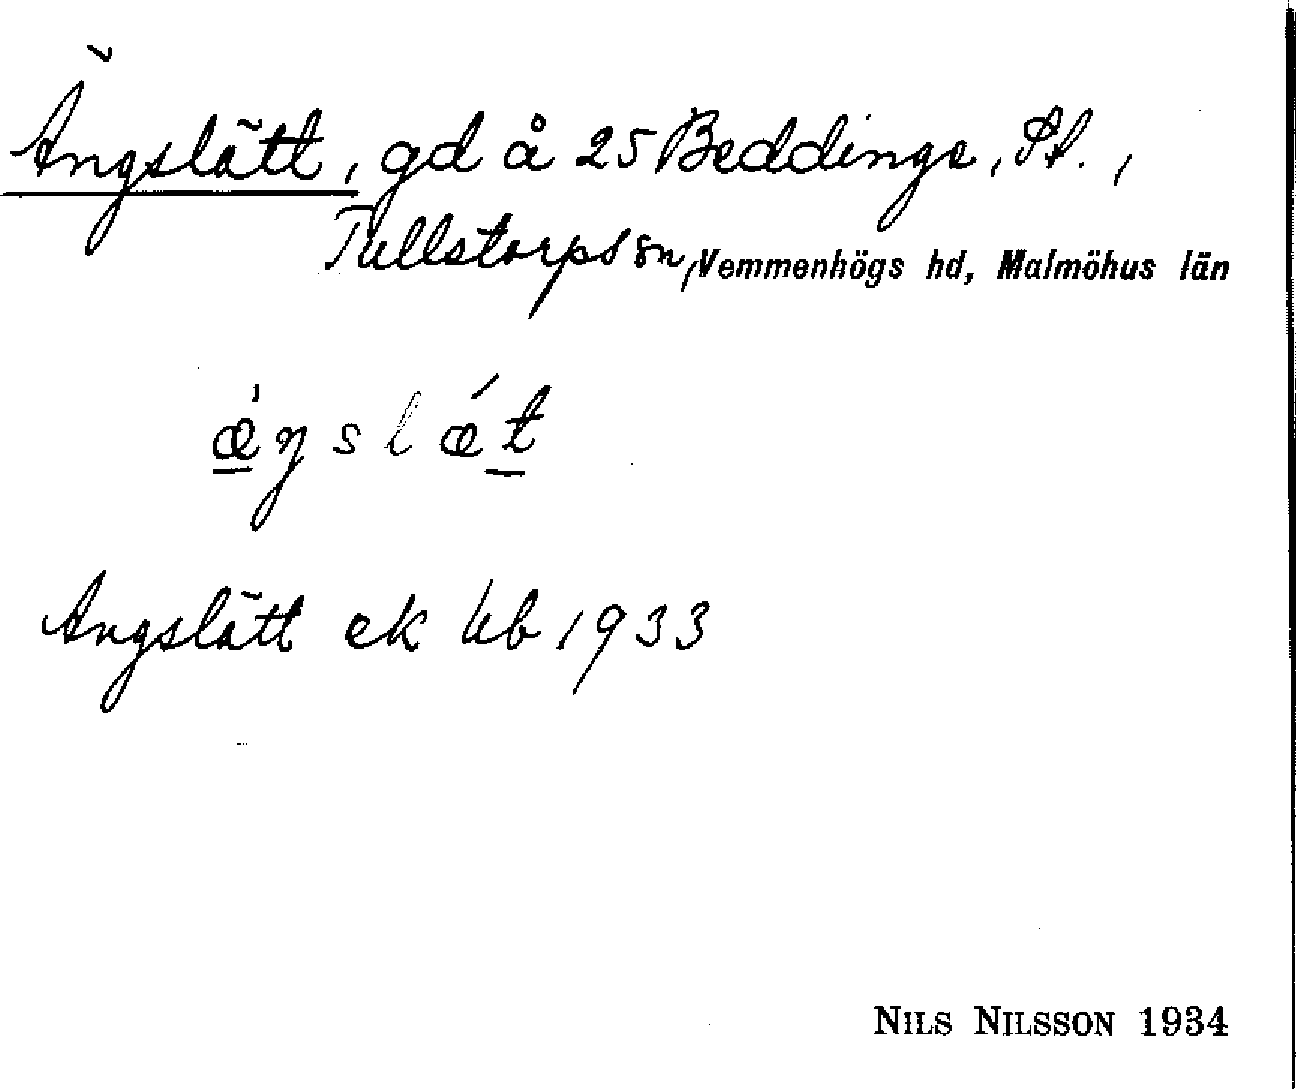 Ängslätt, gd å 25 Beddinge, St.,
Tullstorps sn, Vemmenhögs hd, Malmöhus län
ǽ̠ŋslǽt̠
Ängslätt ek Ub 1933
NILS NILSSON 1934